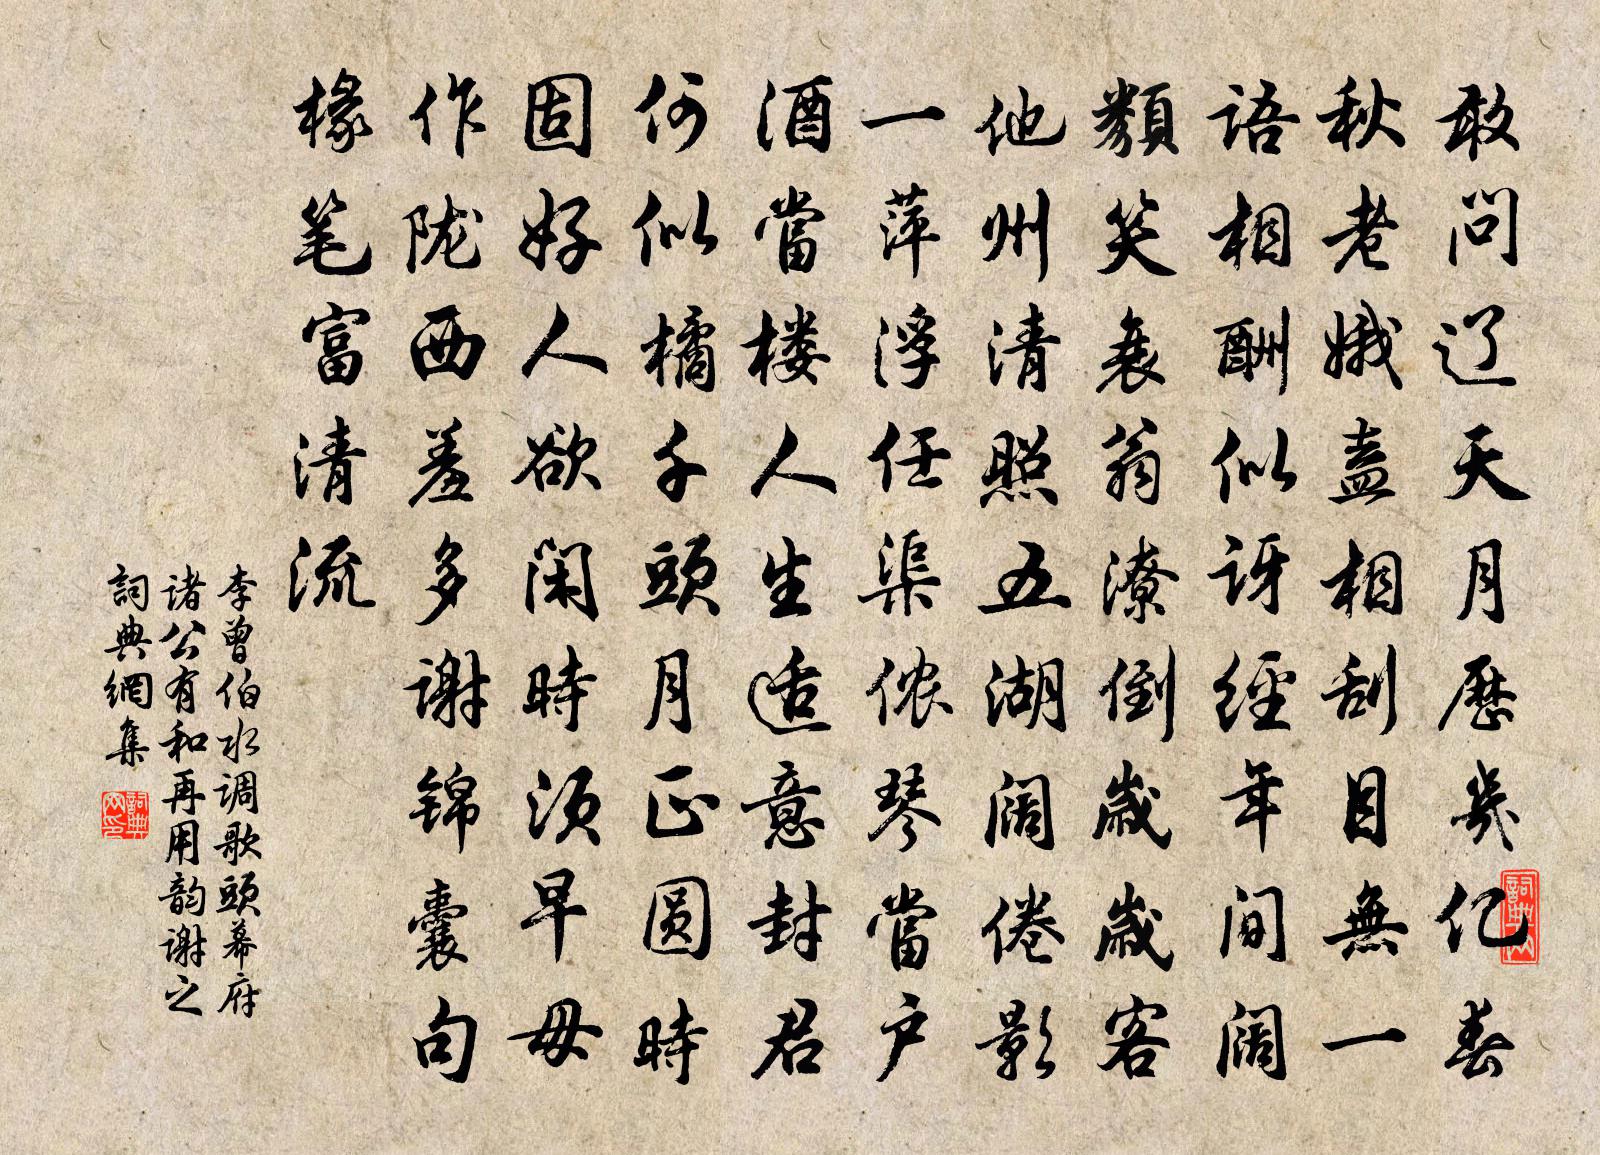 敢问辽天月历几亿春
秋老娥盍相刮目無一
語相酬似讶經年间阔
類笑衰翁潦倒歲歲客
他州清照五湖阔倦影
一萍浮任渠侬琴當户
酒當楼人生适意封君
何似橘千頭月正圆時
固好人欲闲時须早毋
作陇西羞多谢锦囊句
椽笔富清流
李曾伯水调歌頭幕府
诸公有和再用韵谢之
詞典網集